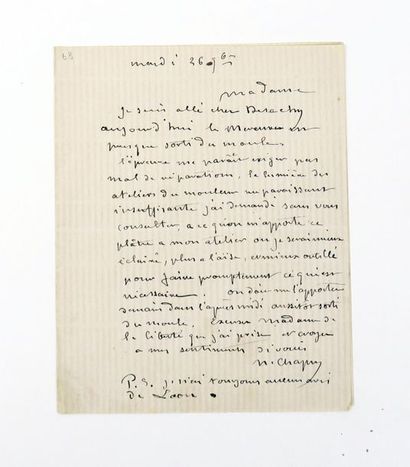 68
mardi 26 9bre
Madame
Je suis allé chez Desachy
aujourd'hui le Mercure est
presque sorti du moule
l'épreuve me paraît exiger pas
mal de réparations, la lumière des
ateliers du mouleur me paraissant
insuffisante j'ai demandé sans vous
consulter, a ce qu'on m'apporte ce
plâtre a mon atelier ou je serai mieux
éclairé, plus a l'aise, et mieux outillé
pour faire promptement ce qui est
nécessaire. on doit me l'apporter
demain dans l'après midi aussitôt sorti
du moule. Excusez madame de
la liberté que j'ai prise et croyez
a mes sentiments dévoués
h. Chapu
P.S. je n'ai toujours aucun avis
de Laon.